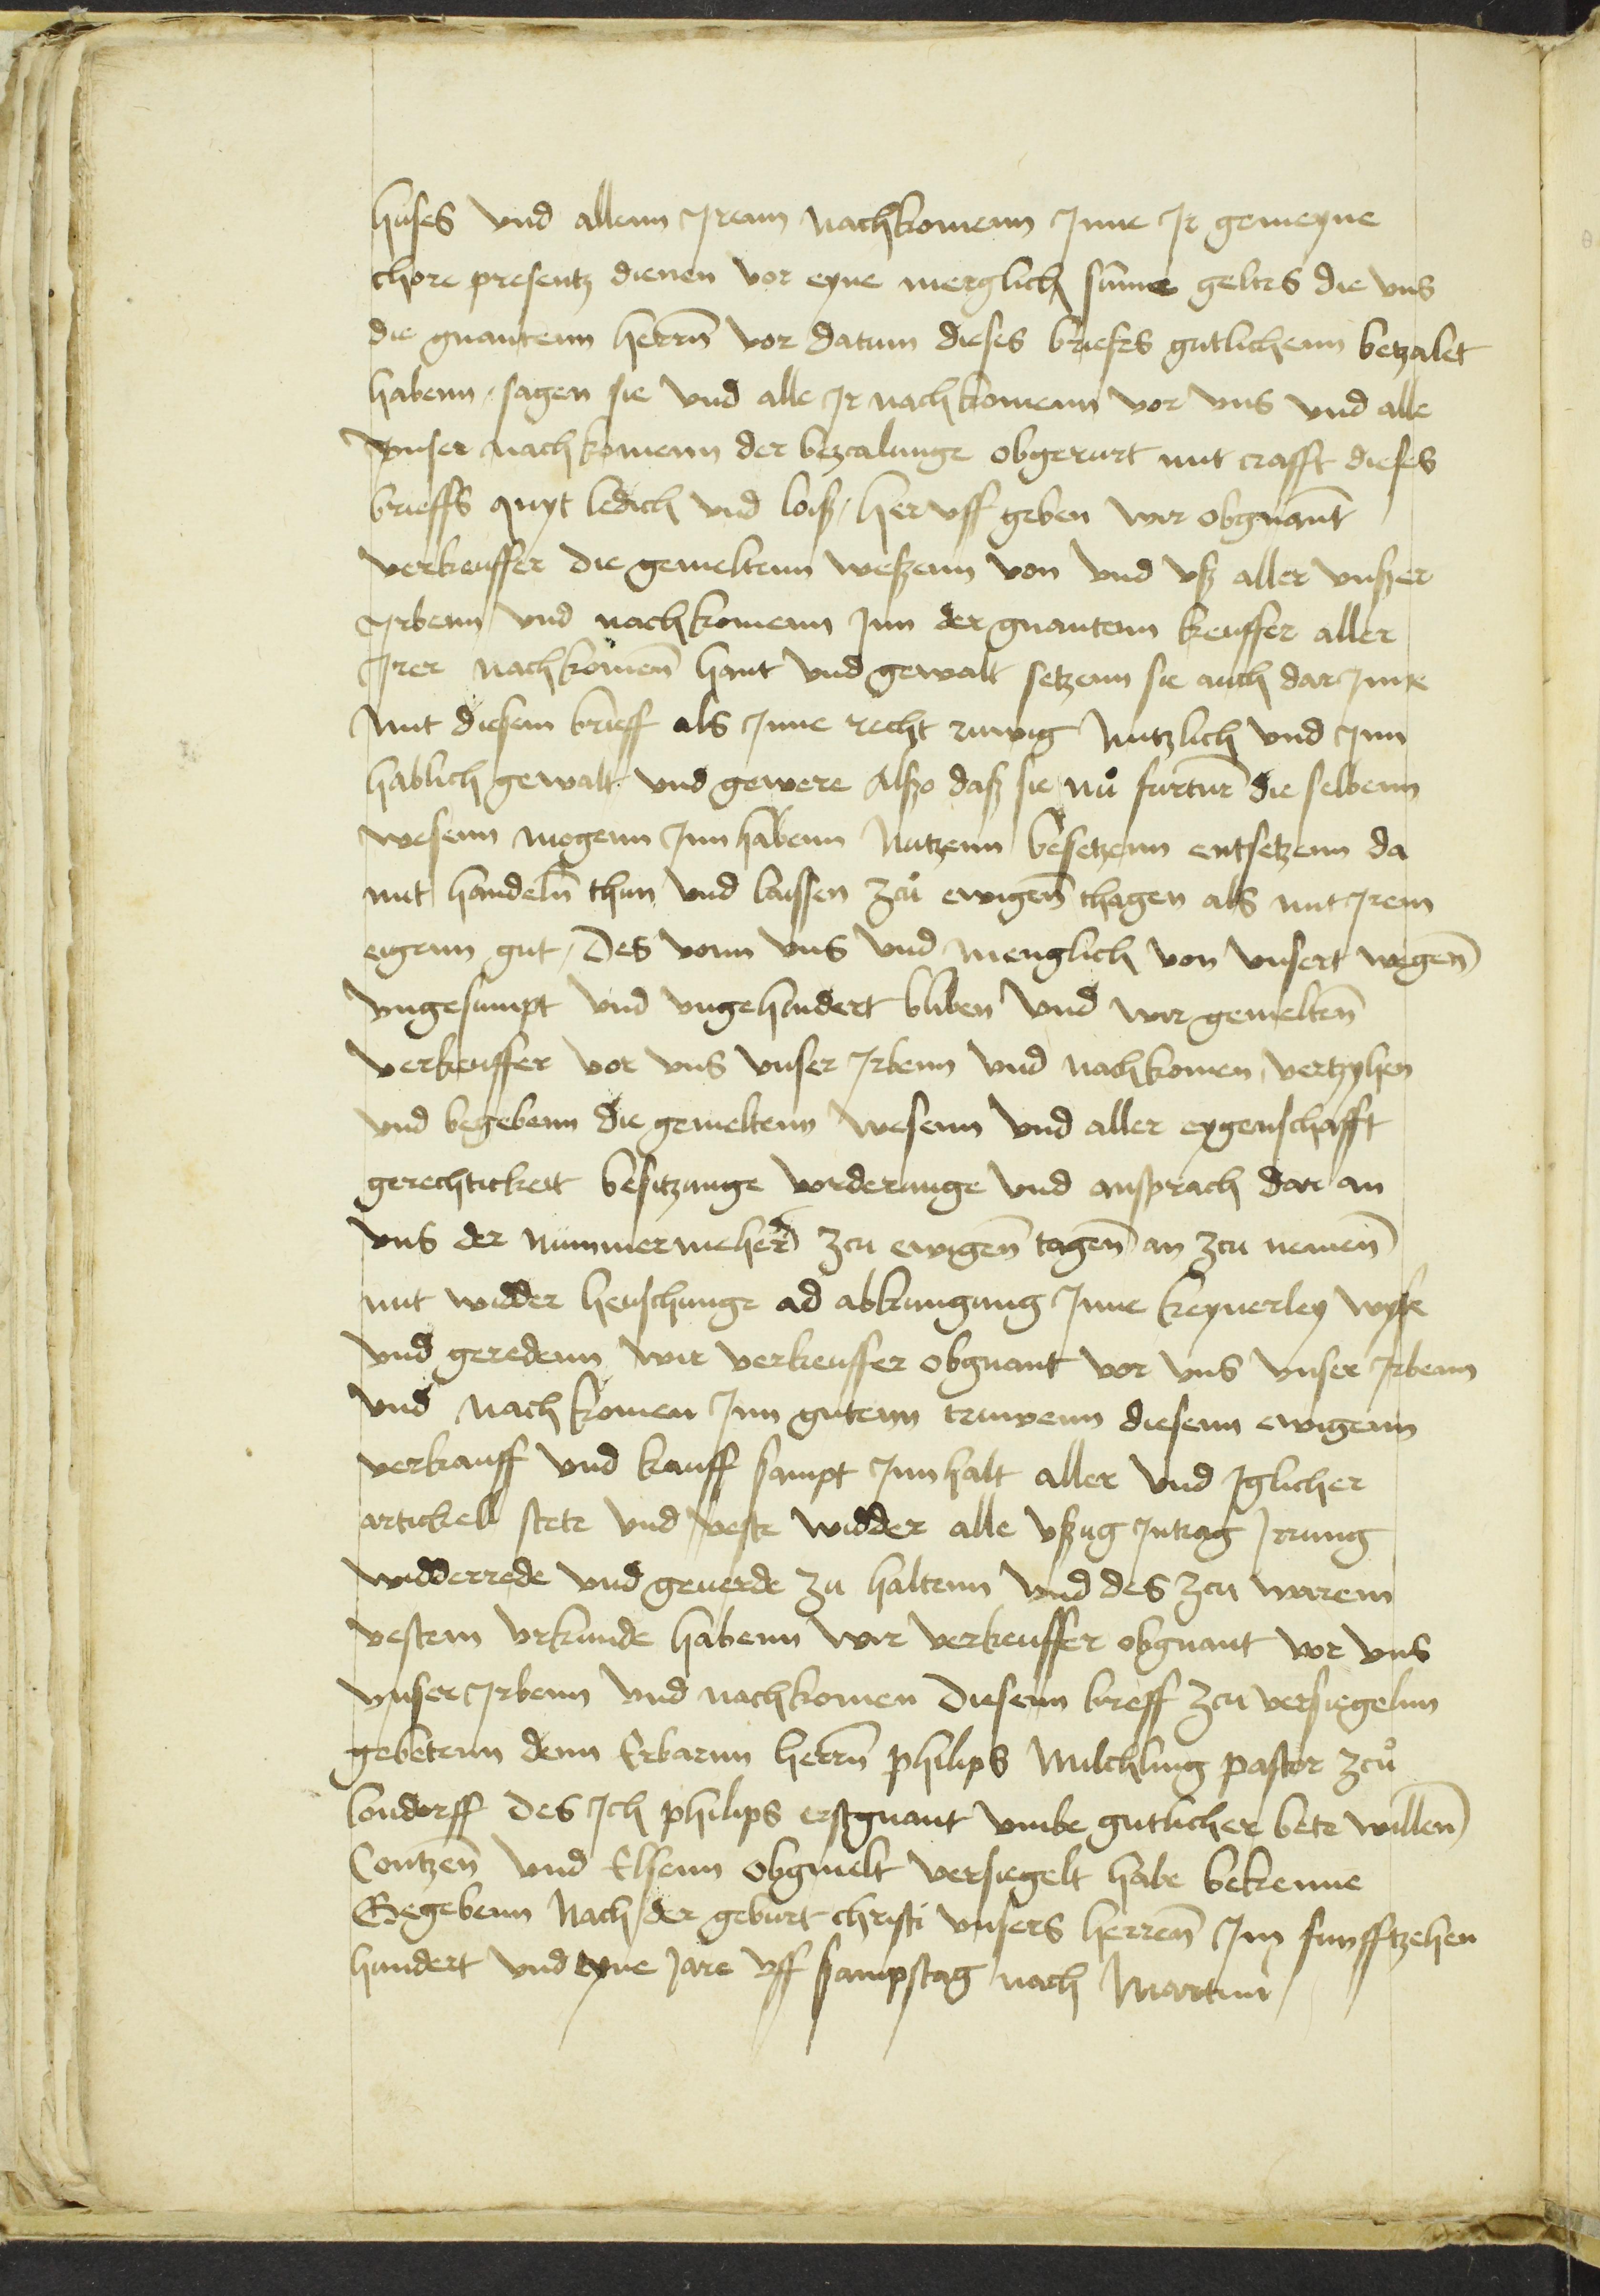 huses vnd allenn Jrenn nachkomenn Jnne Jr gemeyne
chore presentz dienen vor eyne merglich sume geltes die vns
die gnantenn herrn vor datum dieses briefes gutlichenn betzalet
habenn / sagen sie vnd alle Jr nachkomenn vor vns vnd alle
vnser nachkomenn der bezcalunge obgerurt mit crafft dieses
brieffs quyt ledich vnd loiß / her vff geben wir obgnant
verkeuffer die gemeltenn weßenn von vnd vß aller vnßer
Jrbenn vnd nachkomenn Jnn der gnantenn keuffer aller
Jrer nachkomen hant vnd gewalt setzenn sie auch dar Jnne
mit diesem brieff als Jnne recht ruwig nutzlich vnd Jnn
hablich gewalt vnd gewere Alßo daß sie nu furtme die selbenn
wesenn mogenn Jnn habenn Nutzenn besetzenn entsetzenn da
mit handeln thun vnd laissen zcu ewigen thagen als mit Jrem
eigenn gut / Des vonn vns vnd menglich von vnsert wegen
vngesumpt vnd vngehindert bliben vnd wir gemelten
verkeuffer vor vns vnser Jrbenn vnd nachkomen vertzyhen
vnd begebenn die gemeltenn wesenn vnd aller eygenschafft
gerechtickeit besitzunge vorderunge vnd ansprach dar an
vns der nummermeher zcu ewigen tagen an zcu nemen
mit widder heuschunge ad abkungung Jnne keynerley wyse
vnd geredenn wir verkeuffer obgnant vor vns vnser Jrbenn
vnd nachkomen Jnn gutenn truwenn diesenn ewigenn
verkauff vnd kauff sampt Jnnhalt aller vnd Jglicher
artickell stete vnd veste widder alle vßzug Jntrag Jrrung
widderrede vnd geuerde zu haltenn vnd des zcu warem
vestem vrkunde habenn wir verkeuffer obgnant vor vns
vnser Jrbenn vnd nachkomen diesenn brieff zcu versiegelnn
gebetenn denn Erbarnn herrn philips Milchling pastor zcu
londorff Des Jch philips erstgnant vmbe gutlicher bete willen
Contzen vnd Elsenn obgmelt versiegelt habe bekenne
Gegebenn Nach der geburt christi vnsers herren Jm funfftzehen
hundert vnd eyne Jare vff sampstag nach Martini